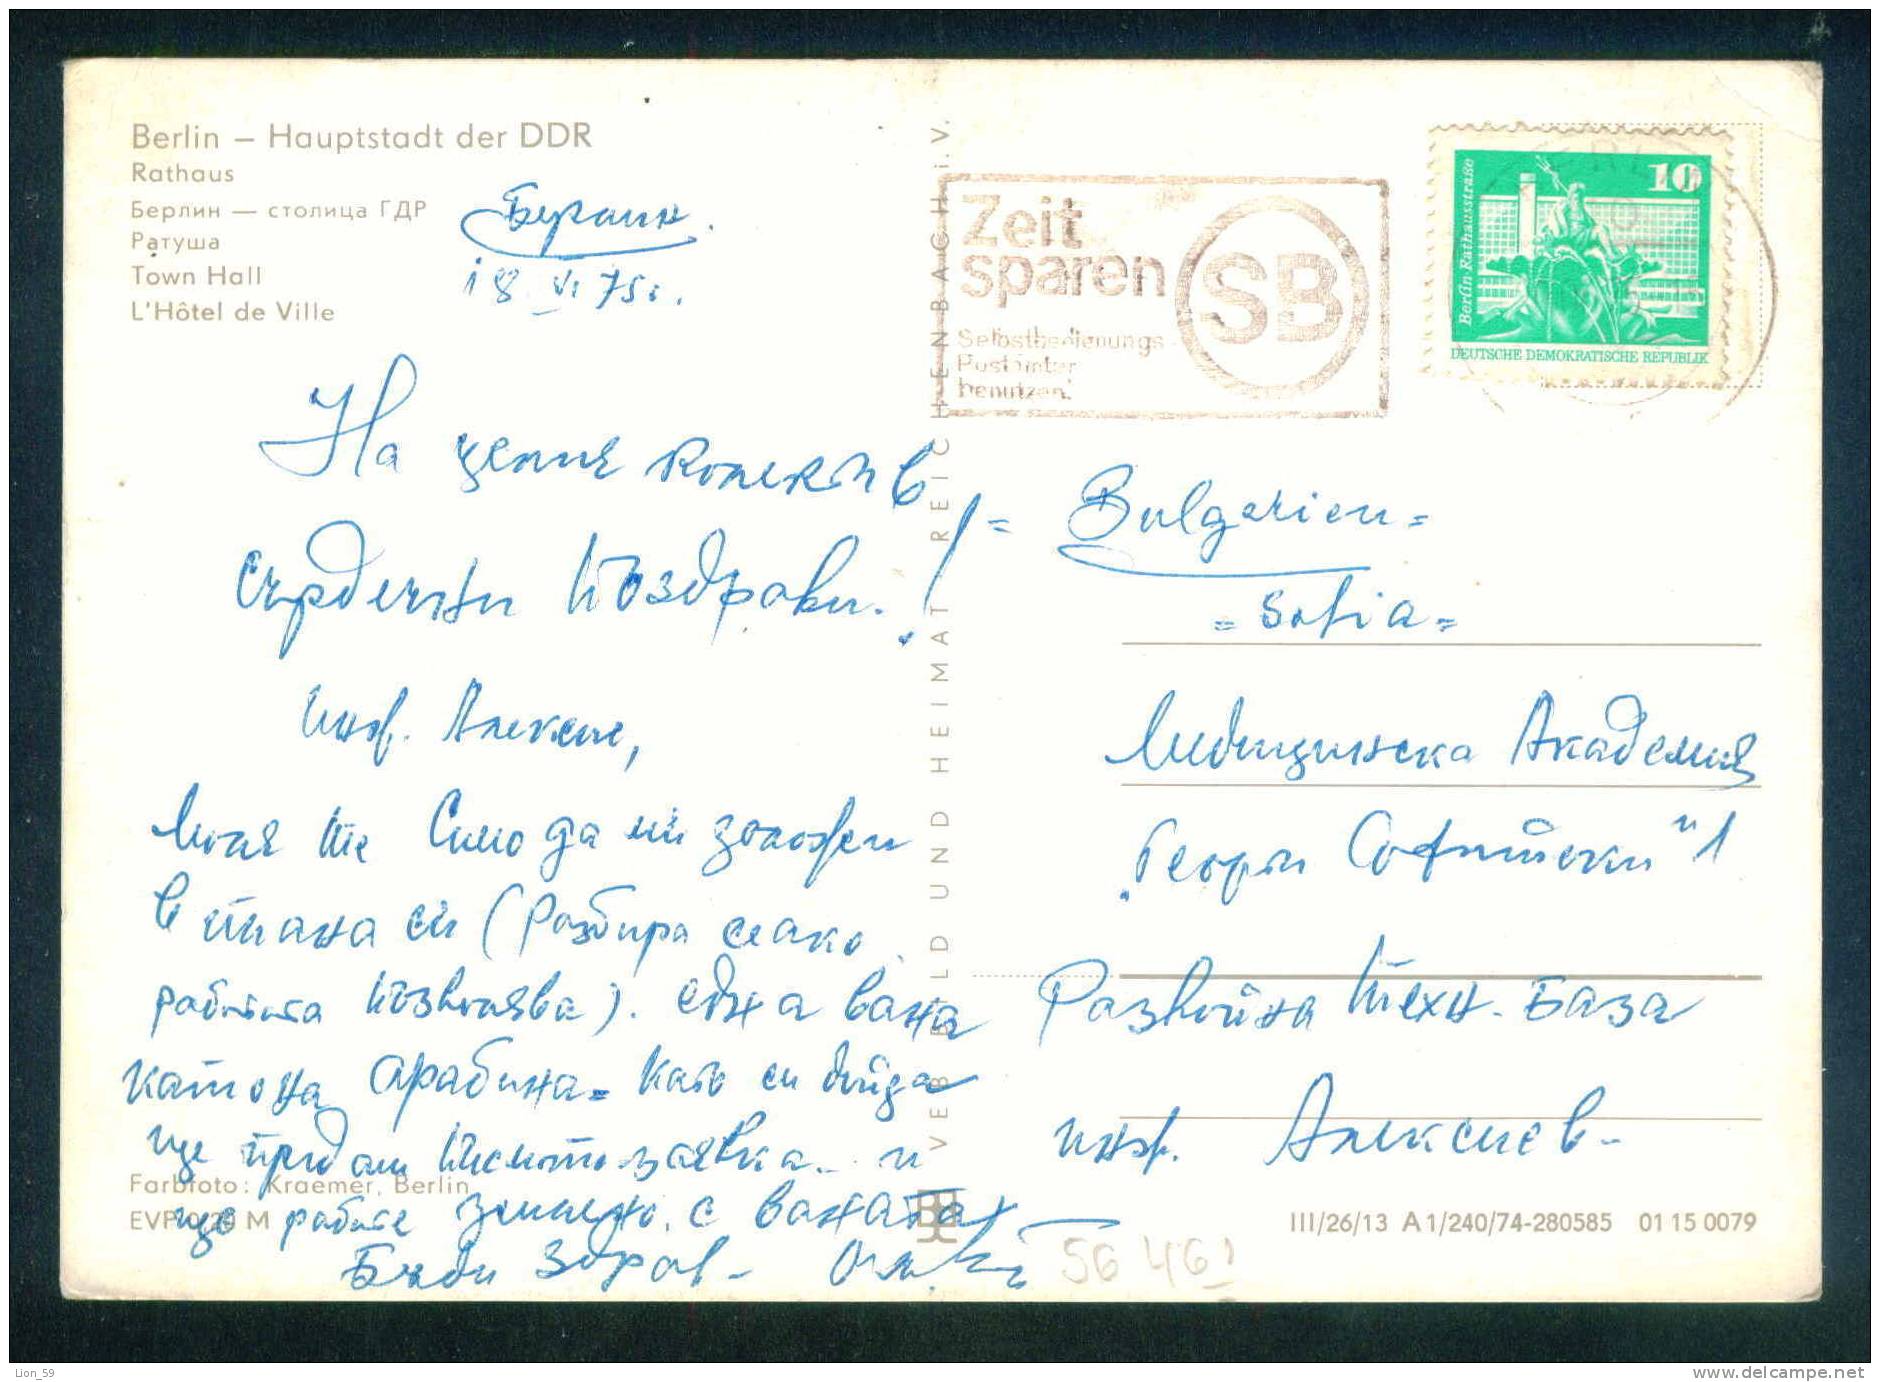 Berlin – Hauptstadt der DDR
Rathaus
Берлин — столица ГДР
Ратуша
Town Hall
L'Hôtel de Ville
Берлин.
18.VI.75г.
На целия колектив
сърдечни поздрави!
Инж. Алексиев,
Моля те Симо да ми заложен
в плана си (разбира се ако
работата позволява). една
като на Арабина = като си дойда
ще придам и
ще работе с
Бъди здрав –
Farbfoto: Kraemer, Berlin
EVP 0,20 M
VEB BILD UND HEIMAT REICHENBACH i.V.
Zeit
sparen
SB
Selbstbedienungs
Postämter
benutzen!
10
Berlin Rathausstraße
DEUTSCHE DEMOKRATISCHE REPUBLIK
= Bulgarien =
= Sofia =
Медицинска Академия
"Георги Софийски" 1
Развойна Техн. База
инж. Алексиев –
III/26/13 A 1/240/74-280585 01 15 0079
56 46
Lion_59
www.delcampe.net